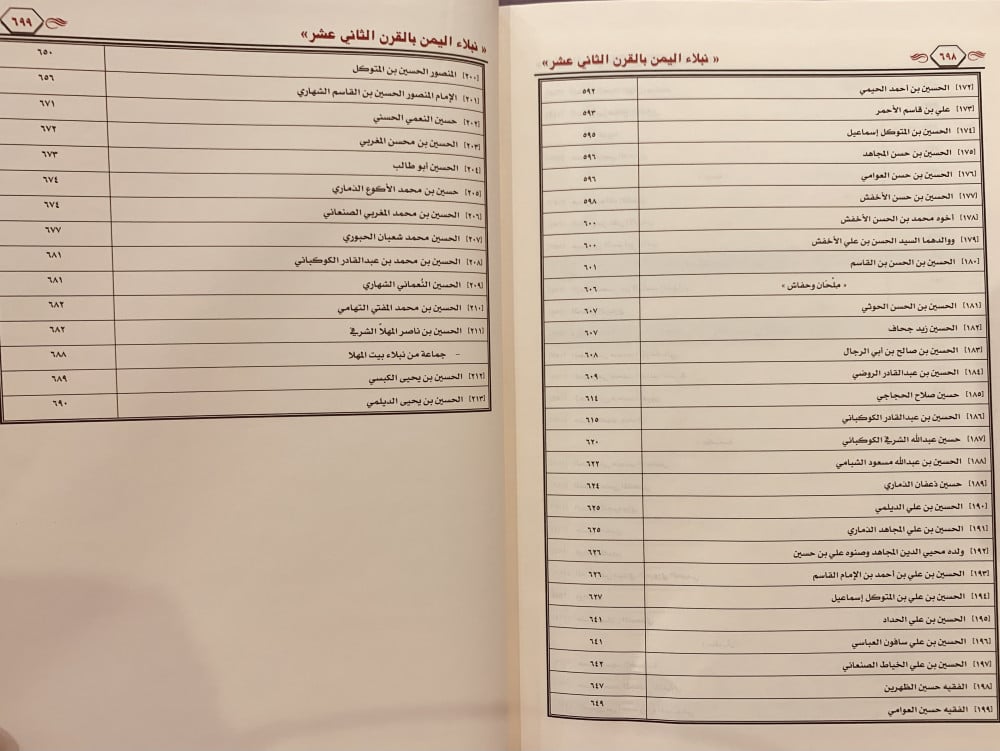 ٦٩٨
« نبلاء اليمن بالقرن الثاني عشر»
[١٧٢] الحسين بن أحمد الحيمي ٥٩٢
[١٧٣] علي بن قاسم الأحمر ٥٩٣
[١٧٤] الحسين بن المتوكل إسماعيل ٥٩٥
[١٧٥] الحسين بن حسن المجاهد ٥٩٦
[١٧٦] الحسين بن حسن العوامي ٥٩٦
[١٧٧] الحسين بن حسن الأخفش ٥٩٨
[١٧٨] أخوه محمد بن الحسن الأخفش ٦٠٠
[١٧٩] ووالدهما السيد الحسن بن علي الأخفش ٦٠٠
[١٨٠] الحسين بن الحسن بن القاسم ٦٠١
« مِلْحَان وحفاش » ٦٠٦
[١٨١] الحسين بن الحسن الحوثي ٦٠٧
[١٨٢] الحسين زيد جحاف ٦٠٧
[١٨٣] الحسين بن صالح بن أبي الرجال ٦٠٨
[١٨٤] الحسين بن عبدالقادر الروضي ٦٠٩
[١٨٥] حسين صلاح الحجاجي ٦١٤
[١٨٦] الحسين بن عبدالقادر الكوكباني ٦١٥
[١٨٧] حسين عبدالله الشرفي الكوكباني ٦٢٠
[١٨٨] الحسين بن عبدالله مسعود الشبامي ٦٢٢
[١٨٩] حسين ذعفان الذماري ٦٢٤
[١٩٠] الحسين بن علي الديلمي ٦٢٥
[١٩١] الحسين بن علي المجاهد الذماري ٦٢٥
[١٩٢] ولده محيي الدين المجاهد وصنوه علي بن حسين ٦٢٦
[١٩٣] الحسين بن علي بن أحمد بن الإمام القاسم ٦٢٦
[١٩٤] الحسين بن علي بن المتوكل إسماعيل ٦٢٧
[١٩٥] الحسين بن علي الحداد ٦٤١
[١٩٦] الحسين بن علي سافون العباسي ٦٤١
[١٩٧] الحسين بن علي الخياط الصنعاني ٦٤٢
[١٩٨] الفقيه حسين الظهرين ٦٤٧
[١٩٩] الفقيه حسين العوامي ٦٤٩
« نبلاء اليمن بالقرن الثاني عشر»
٦٩٩
[٢٠٠] المنصور الحسين بن المتوكل ٦٥٠
[٢٠١] الإمام المنصور الحسين بن القاسم الشهاري ٦٥٦
[٢٠٢] حسين النعمي الحسني ٦٧١
[٢٠٣] الحسين بن محسن المغربي ٦٧٢
[٢٠٤] الحسين أبو طالب ٦٧٣
[٢٠٥] حسين بن محمد الأكوع الذماري ٦٧٤
[٢٠٦] الحسين بن محمد المغربي الصنعاني ٦٧٤
[٢٠٧] الحسين محمد شعبان الحبوري ٦٧٧
[٢٠٨] الحسين بن محمد بن عبدالقادر الكوكباني ٦٨١
[٢٠٩] الحسين النُعماني الشهاري ٦٨١
[٢١٠] الحسين بن محمد المفتي التهامي ٦٨٢
[٢١١] الحسين بن ناصر المهلاّ الشرفي ٦٨٢
- جماعة من نبلاء بيت المهلا ٦٨٨
[٢١٢] الحسين بن يحيى الكبسي ٦٨٩
[٢١٣] الحسين بن يحيى الديلمي ٦٩٠